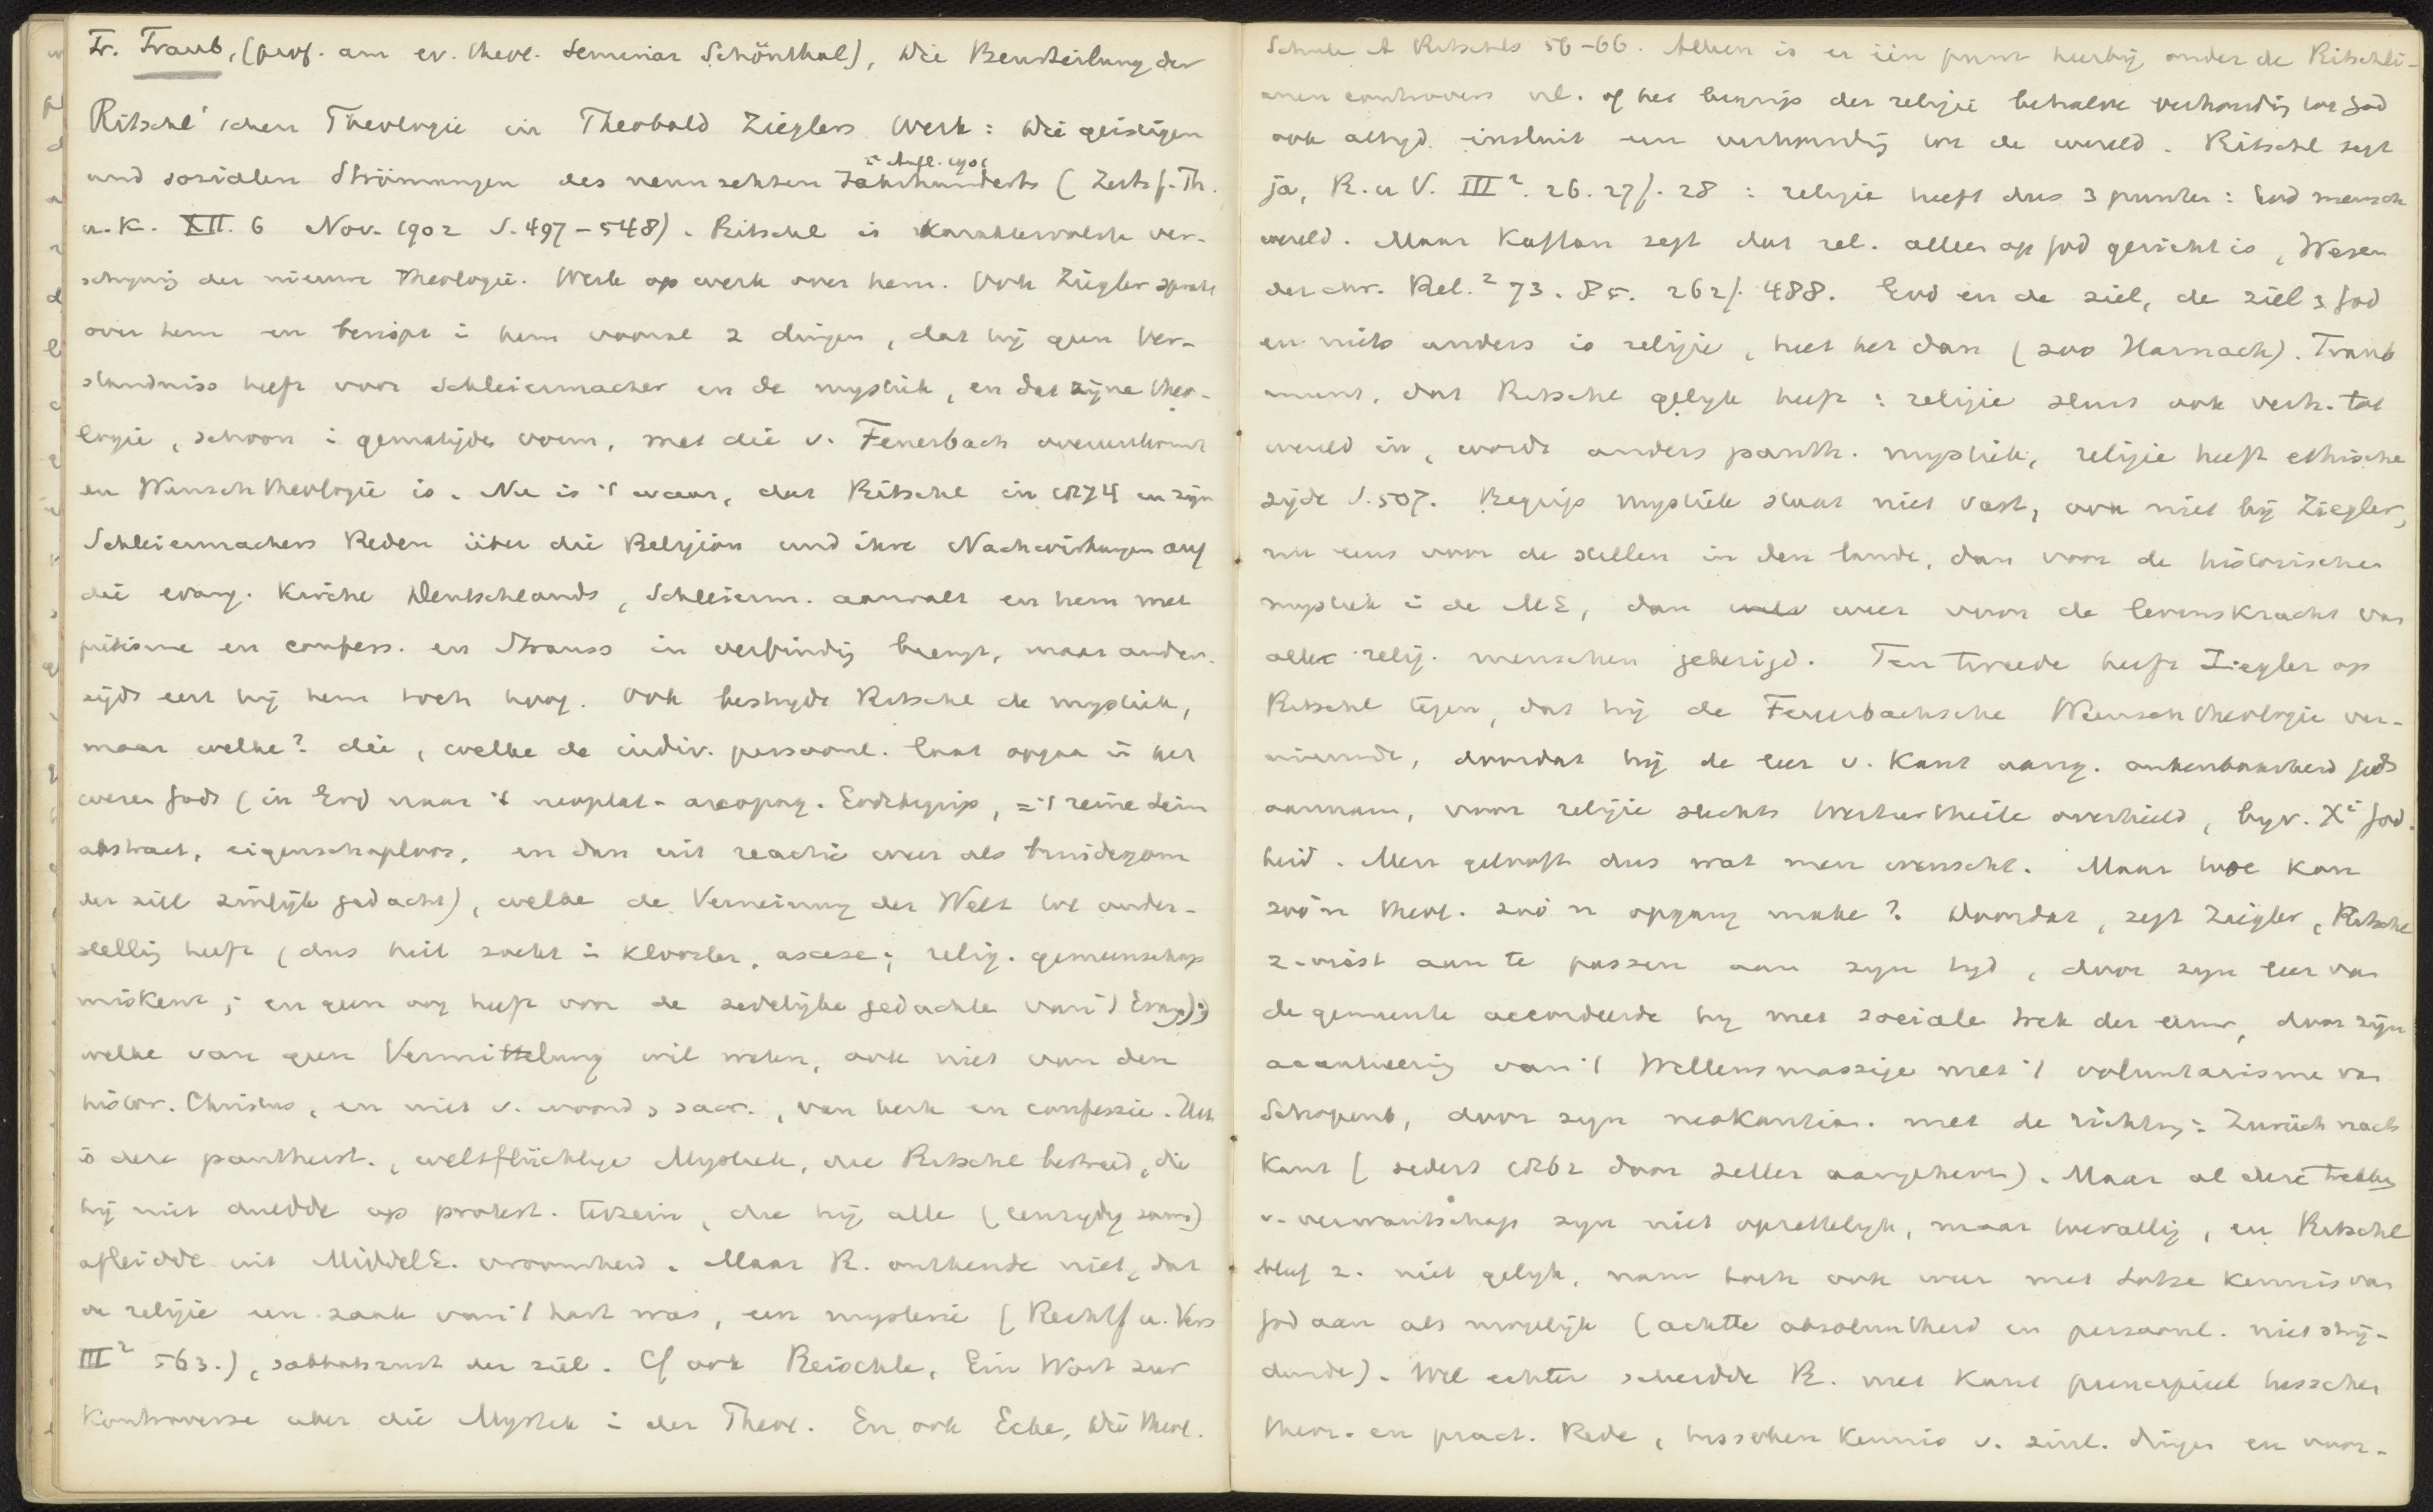 Fr. Traub, (prof. am ev. theol. Seminar Schönthal), Die Beurteilung der
Ritschl'schen Theologie in Theobald Zieglers Werk: Die geistigen
2e Aufl. 1901
und sozialen Strömungen des neunzehnten Jahrhunderts (Zeits f. Th.
u. K. XII. 6 Nov. 1902 S. 497-548). Ritschl is karaktervolste ver-
schijning der nieuwe Theologie. Werk op werk over hem. Ook Ziegler sprak
over hem en berispt i hem vooral 2 dingen, dat hij geen Ver-
ständniss heeft voor Schleiermacher en de mystiek, en dat zijne theo-
logie, schoon i gematigde vorm, met die v. Feuerbach overeenkomt
en Wunschtheologie is. Nu is 't waar, dat Ritschl in 1874 in zijn
Schleiermachers Reden über die Religion und ihre Nachwirkungen auf
die evang. Kirche Deutschlands, Schleierm. aanvalt en hem met
piëtisme en confess. en Strauss in verbindig brengt, maar ander-
zijds eert hij hem toch hoog. Ook bestrijdt Ritschl de mystiek,
maar welke? die, welke de indiv. persoonl. laat opgaa in het
weze Gods (in God naar 't neoplat-areopag. Godsbegrip, = 't reine Sein
abstract, eigenschaploos, en dan uit reactie weer als bruidegom
der ziel zinlijk gedacht), welke de Verneinung der Welt tot onder-
stellig heeft (dus heil zoekt i klooster, ascese; relig. gemeenschap
miskent; en geen oog heeft voor de zedelijke gedachte van 't Evang.);
welke van geen Vermittelung wil weten, ook niet van den
histor. Christus, en niet v. woord & sacr., van kerk en confessie. Het
is deze pantheist., weltflüchtige Mystiek, die Ritschl bestreed, die
hij niet duldde op protest. terrein, die hij alle (eenzijdig soms)
afleidde uit MiddelE. vroomheid. Maar R. ontkende niet, dat
de religie een zaak van 't hart was, een mysterie (Rechtf u. Vers
III² 563.), sabbatsrust der ziel. Cf ook Reischle, Ein Wort zur
Kontroverse über die Mystik i der Theol. En ook Ecke, Die theol.
Schule A Ritschls 56-66. Alleen is er één punt hierbij onder de Ritschli-
anen controvers nl. of het begrip der religie behalve verhoudig tot God
ook altijd insluit een verhoudig tot de wereld. Ritschl zegt
ja, R. u V. III². 26. 27f. 28: religie heeft dus 3 punten: God mensch
wereld. Maar Kaftan zegt dat rel. alleen op God gericht is, Wesen
der chr. Rel.² 73. 85. 262f. 488. God en de ziel, de ziel & God
en niets anders is religie, heet het dan (zoo Harnack). Traub
meent, dat Ritschl gelijk heeft: religie sluit ook verh. tot
wereld in, wordt anders panth. mystiek, religie heeft ethische
zijde S. 507. Begrip mystiek staat niet vast, ook niet bij Ziegler,
nu eens voor de stillen in den lande, dan voor de historische
mystiek i de ME, dan weer voor de levenskracht van
alle relig. menschen gebezigd. Ten tweede heeft Ziegler op
Ritschl tegen, dat hij de Feuerbachsche Wunschtheologie ver-
nieuwde, doordat hij de leer v. Kant aang. onkenbaarheid Gods
aannam, voor religie slechts Werturtheile overhield, byv. Xi God-
heid. Men gelooft dus wat men wenscht. Maar hoe kan
zoo'n theol. zoo'n opgang make? Doordat, zegt Ziegler, Ritschl
z. wist aan te passen aan zijn tijd, door zijn leer van
de gemeente accordeerde hij met sociale trek der eeuw, door zijn
aanknooping van 't Willensmässige met 't voluntarisme van
Schopenh, door zijn neokantian. met de richting: Zurück nach
Kant (sedert 1862 door Zeller aangeheven). Maar al deze trekken
v. verwantschap zijn niet opzettelijk, maar toevallig, en Ritschl
bleef z. niet gelijk, nam toch ook weer met Lotze kennis van
God aan als mogelijk (achtte absoluutheid en persoonl. niet strij-
dende). Wel echter scheidde R. met Kant principieel tusschen
theor. en pract. Rede, tusschen kennis v. zinl. dingen en voor-